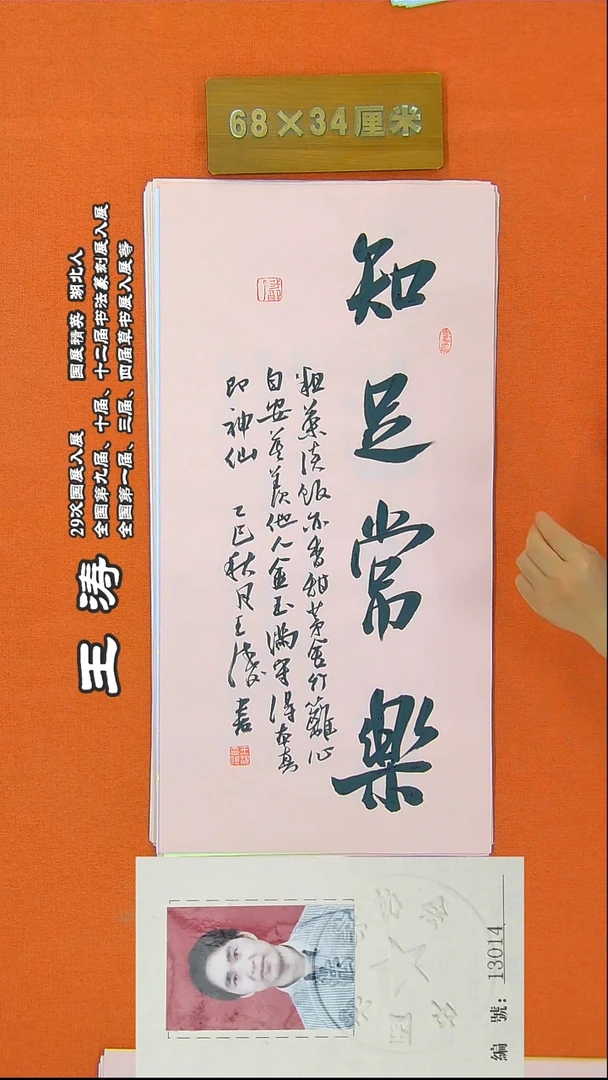 68×34厘米
知足常樂
粗茶淡飯亦香甜茅舍竹籬心
自安莫羨他人金玉滿守得本真
即神仙 乙巳秋月王濤書
王 涛
29次国展入展 国展精英 湖北人
全国第九届、十届、十二届书法篆刻展入展
全国第一届、三届、四届草书展入展等
編 號：13014